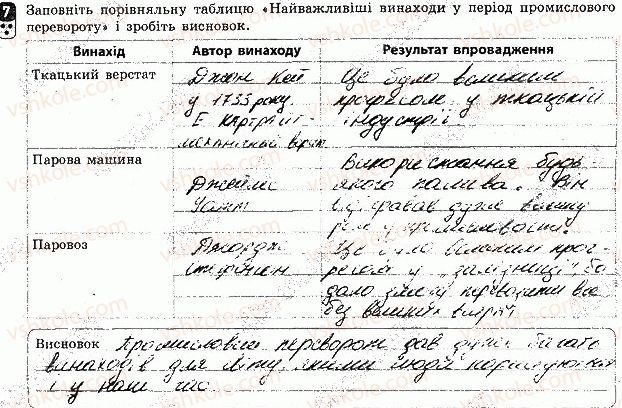 7 Заповніть порівняльну таблицю «Найважливіші винаходи у період промислового
перевороту» і зробіть висновок.
Винахід Автор винаходу Результат впровадження
Ткацький верстат
Джон Кей
у 1733 року
Е. Картрайт
механічний верст.
Це було великим
прогресом у ткацькій
індустрії
Парова машина
Джеймс
Уатт
Використання будь-
якого палива. Він
відігравав дуже велику
роль у промисловості.
Паровоз
Джордж
Стефенсон
Це було великим прог-
ресом у залізниці, бо
дало змогу перевозити все
без великих витрат
Висновок Промисловий переворот дав дуже багато
винаходів для світу, якими люди користуються
і у наш час